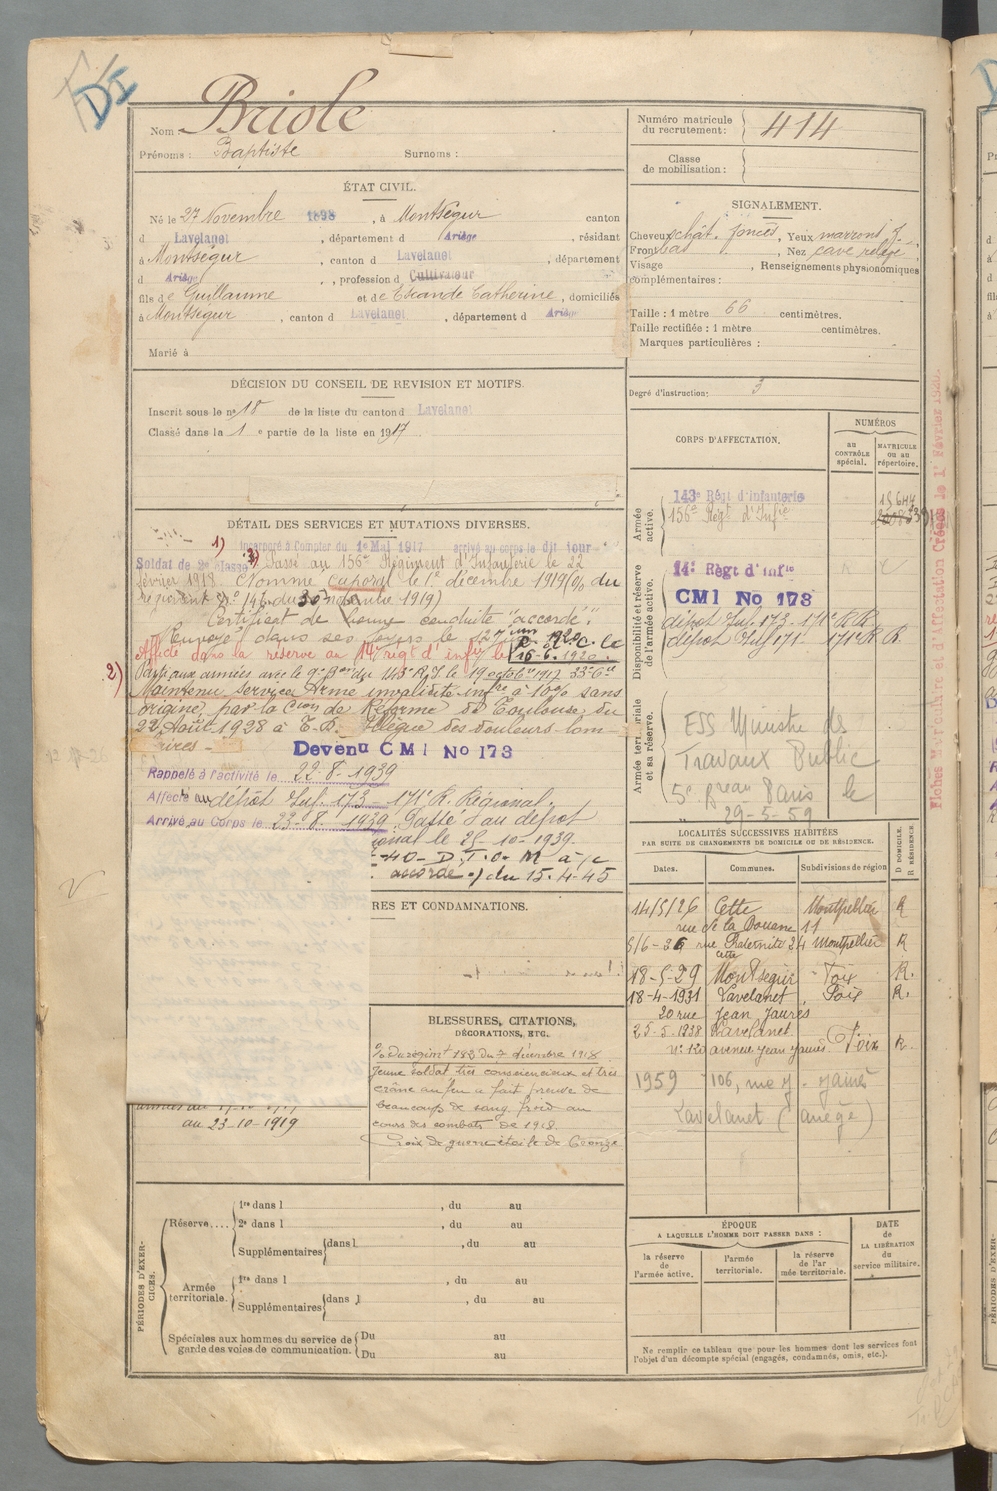 DI
Nom : Briole
Prénoms : Baptiste Surnoms :
Numéro matricule du recrutement : 414
Classe de mobilisation :
ÉTAT CIVIL.
Né le 27 Novembre 1898, à Montségur canton
d Lavelanet, département d Ariège, résidant
à Montségur, canton d Lavelanet, département
d Ariège, profession d Cultivateur
fils de Guillaume et de Escande Catherine, domiciliés
à Montségur, canton d Lavelanet, département d Ariège
Marié à
SIGNALEMENT.
Cheveux chât. foncés, Yeux marrons f.
Front bas, Nez cave relevé
Visage , Renseignements physionomiques
complémentaires :
Taille : 1 mètre 66 centimètres.
Taille rectifiée : 1 mètre centimètres.
Marques particulières :
DÉCISION DU CONSEIL DE REVISION ET MOTIFS.
Inscrit sous le n° 18 de la liste du canton d Lavelanet
Classé dans la 1e partie de la liste en 1917
Degré d'instruction : 3
CORPS D'AFFECTATION.
NUMÉROS
au CONTRÔLE spécial.
MATRICULE ou au répertoire.
Armée active.
143e Régt d'Infanterie
156e Régt d'Infie
Disponibilité et réserve de l'armée active.
14e Régt d'Infie
CMI No 173
dépôt Inf. 173 - 171e R.R.
dépôt Inf 171 171e R.R.
Armée territoriale et sa réserve.
ESS Ministre des
Travaux Public
5e Breau Paris le
29-5-59
Fiches Matriculaire et d'Affectation Créées le 1er Février 1920.
DÉTAIL DES SERVICES ET MUTATIONS DIVERSES.
1) Incorporé à Compter du 1er Mai 1917 arrivé au corps le dit jour
Soldat de 2e classe 3) Passé au 156e Régiment d'Infanterie le 22
février 1918. Nommé caporal le 1er décembre 1919 (O/o du
régiment No 146 du 30 novembre 1919)
Certificat de bonne conduite "accordé".
Renvoyé dans ses foyers le 12 juin 1920
Affecté dans la réserve au 14e régt d'infie le 16-6-1920.
2) Parti aux armées avec le 9e Bon du 143e R.I. le 19 octobre 1917 33e Cie
Maintenu service Armé invalidité infre à 10% sans
origine par la Cion de Réforme de Toulouse du
22 Août 1928 à T.D. Allègue des douleurs lom-
baires -
Devenu CMI No 173
Rappelé à l'activité le 22-8-1939
Affecté au dépôt Inf. 173 - 171e R. Régional.
Arrivé au Corps le 23-8-1939. Passé au dépôt
ional le 25-10-1939.
40- D.T.O. M à/c
accordé) du 15-4-45
RES ET CONDAMNATIONS.
BLESSURES, CITATIONS,
DÉCORATIONS, ETC.
O/o du régimt 183 du 7 décembre 1918
Jeune soldat très consciencieux et très
crâne au feu a fait preuve de
beaucoup de sang froid au
cours des combats de 1918.
Croix de guerre étoile de bronze
au 23-10-1919
LOCALITÉS SUCCESSIVES HABITÉES
PAR SUITE DE CHANGEMENTS DE DOMICILE OU DE RÉSIDENCE.
D DOMICILE. R RÉSIDENCE.
Dates. Communes. Subdivisions de région
14/5/26 Cette Montpellier R
rue de la Douane 11
5/6-26 rue Fraternité 24 Montpellier R
Cette
18-5-29 Montségur Foix R.
18-4-1931 Lavelanet Foix R.
20 rue Jean Jaurès
25-5-1938 Lavelanet
No 120 avenue Jean Jaurès. Foix R.
1959 106, rue J. Jaurès
Lavelanet (Ariège)
ÉPOQUE
A LAQUELLE L'HOMME DOIT PASSER DANS :
la réserve de l'armée active.
l'armée territoriale.
la réserve de l'armée territoriale.
DATE de LA LIBÉRATION du service militaire.
Ne remplir ce tableau que pour les hommes dont les services font
l'objet d'un décompte spécial (engagés, condamnés, omis, etc.).
PÉRIODES D'EXERCICES.
Réserve.... 1re dans l , du au
2e dans l , du au
Supplémentaires dans l , du au
Armée territoriale. 1re dans l , du au
Supplémentaires dans l , du au
Spéciales aux hommes du service de garde des voies de communication. Du au
Du au